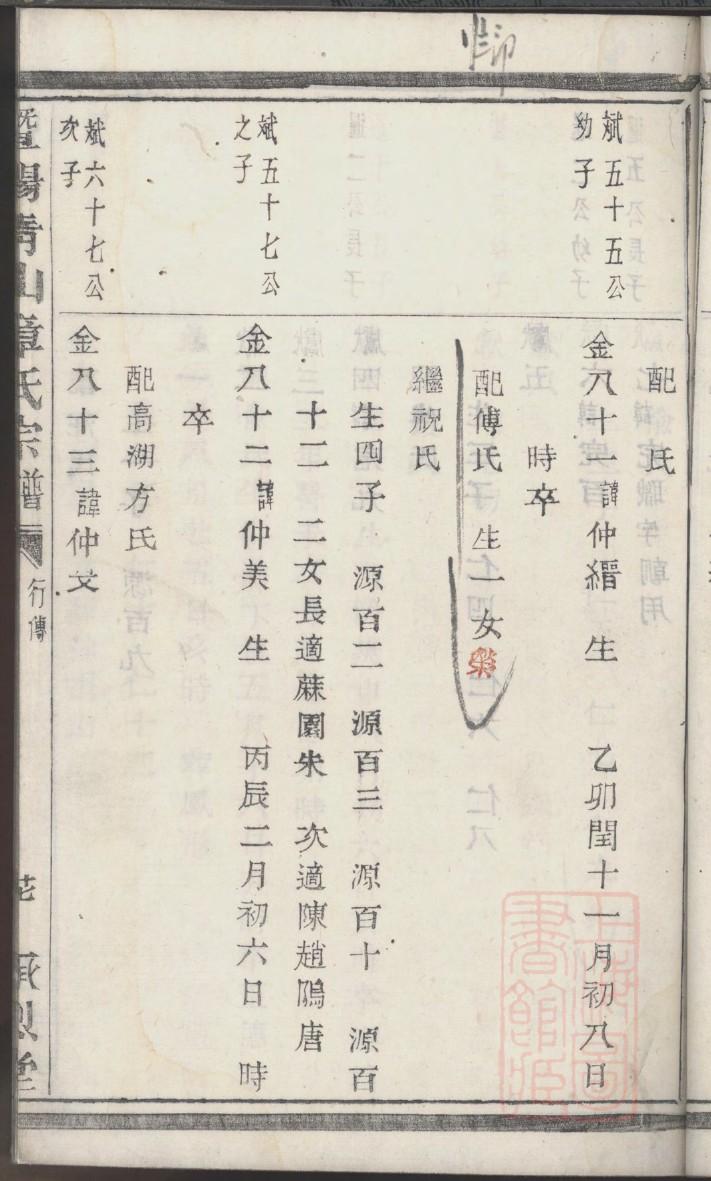 配　氏
斌五十五公
幼子
金八十一諱仲縉　生　乙卯閏十一月初八日
時卒
配傅氏　生一女
繼祝氏
生四子　源百二　源百三　源百十　源百
十二　二女長適蔴園朱　次適陳趙隖唐
斌五十七公
之子
金八十二諱仲美　生　丙辰二月初六日　時
卒
配高湖方氏
斌六十七公
次子
金八十三諱仲文
暨陽青山章氏宗譜
行傳
承烈堂
上海圖書館藏